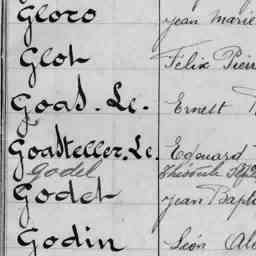 Gloro Jean Marie
Glot Félix Pierr
Goas. Le. Ernest
Goasteller. Le. Edouard
Godel Théodule
Godet Jean Bapt
Godin Léon Al